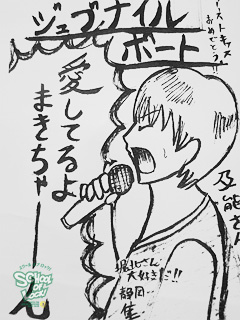 ジュブナイル
ボート
ーストキッス
おめでとう!!
愛してるよ
まきちゃーん
堀北さん
大好きだ!!
静岡